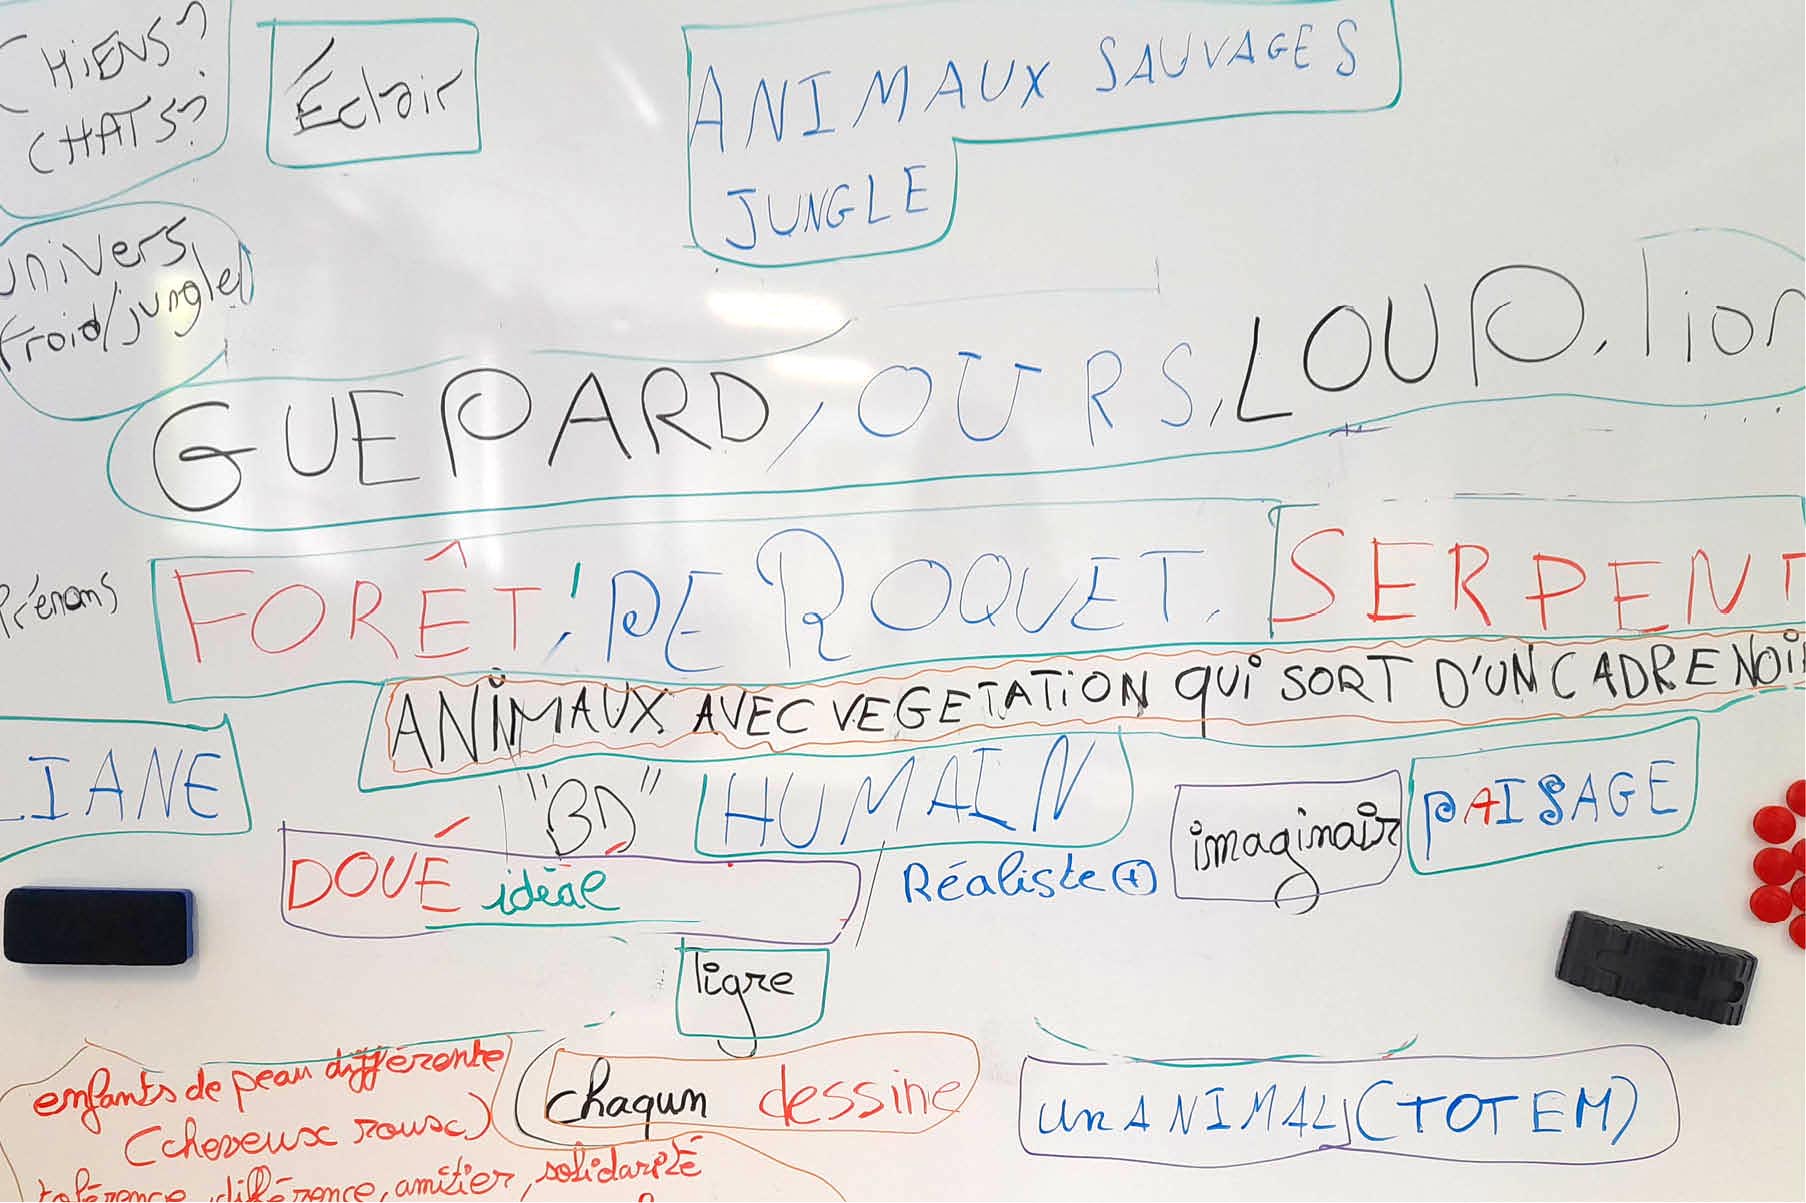 CHIENS?
CHATS?
Éclair
ANIMAUX SAUVAGES
JUNGLE
univers
froid/jungle
GUEPARD, OURS, LOUP, lion
Prénoms
FORÊT, PERROQUET, SERPENT
ANIMAUX AVEC VEGETATION QUI SORT D'UN CADRE NOI
LIANE
"BD"
HUMAIN
imaginair
PAISAGE
DOUÉ idéal
Réaliste (+)
tigre
enfants de peau différente
(cheveux roux)
chaqun dessine
un ANIMAL (TOTEM)
différence, amitier, solidarité